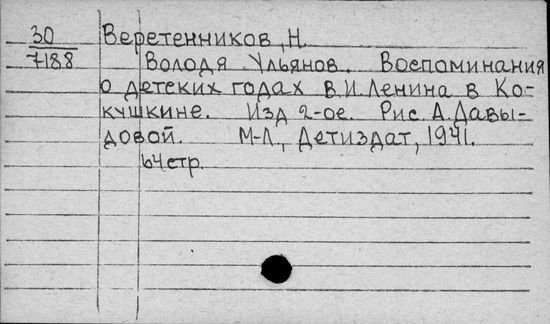 30 Веретенников, Н.
7188 Володя Ульянов. Воспоминания
о детских годах В.И. Ленина в Ко-
кушкине. Изд 2-ое. Рис. А. Давы-
довой. М-Л., Детиздат, 1941.
64стр.